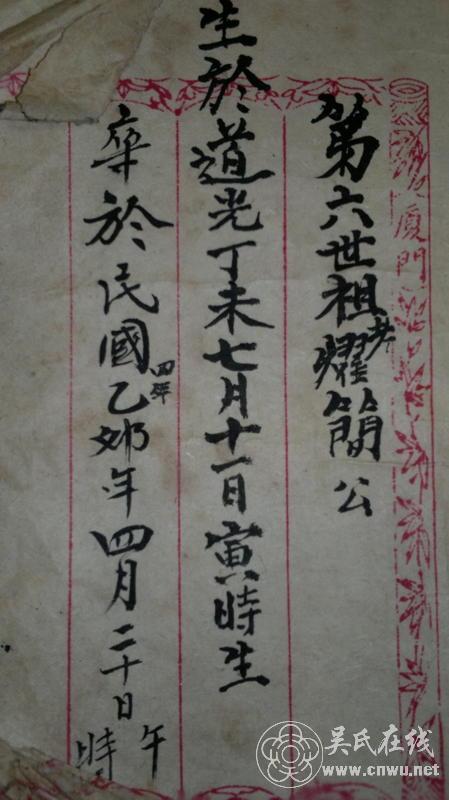 第六世祖考耀簡公
生於道光丁未七月十一日寅時生
卒於民國四年乙卯年四月二十日午時
廈門
吴氏在线
www.cnwu.net